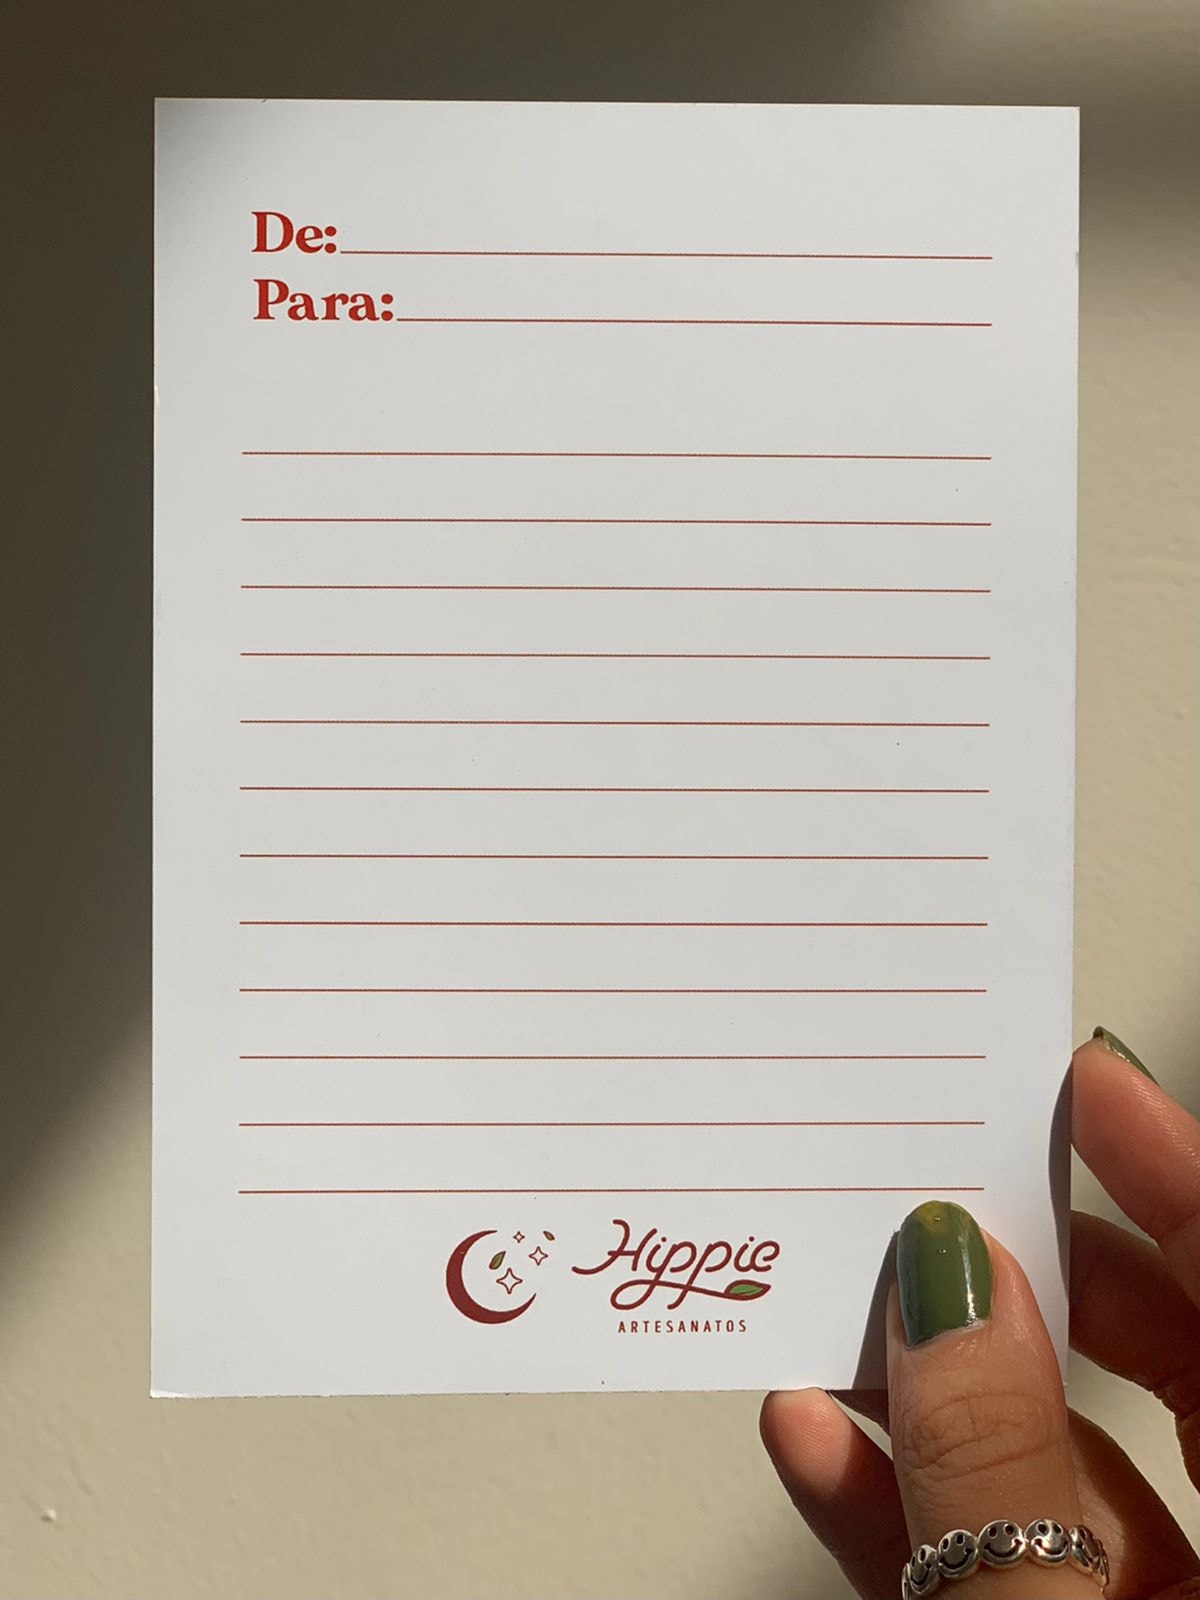 De:
Para:
Hippie
ARTESANATOS